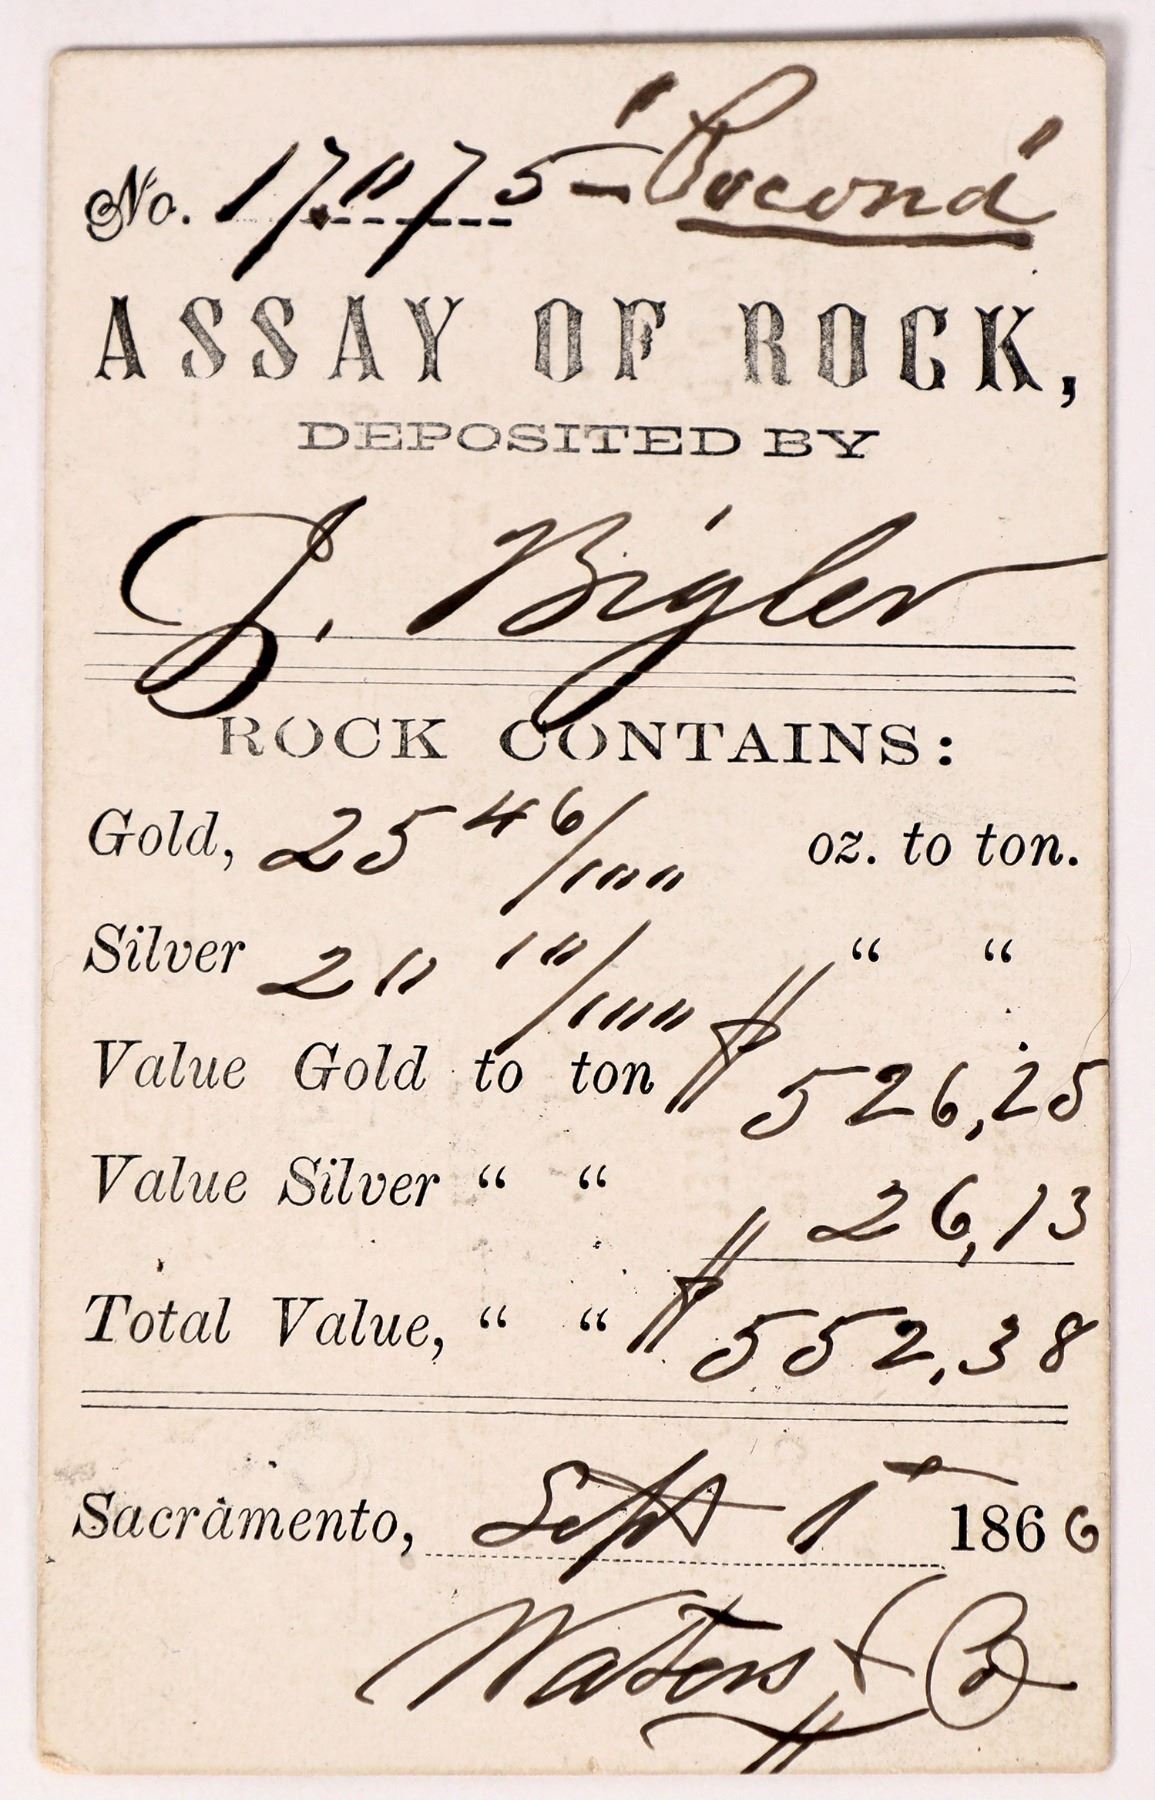 No. 17075 - "Pocond"
ASSAY OF ROCK,
DEPOSITED BY
J. Bigler
ROCK CONTAINS:
Gold, 25 46/100 oz. to ton.
Silver 20 10/100 “ “
Value Gold to ton $ 526,25
Value Silver “ “ 26,13
Total Value, “ “ $ 552,38
Sacramento, Sept 1st 1866
Waters & Co